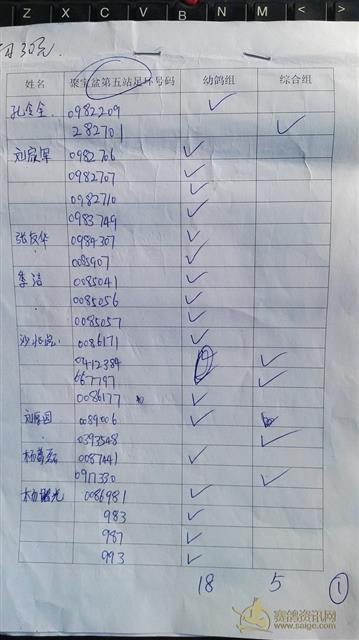 Z X C V B N M < >
姓名 聚宝盆第五站足环号码 幼鸽组 综合组
0982209 ✓
282701 ✓
0982706 ✓
0982707 ✓
0982710 ✓
0983749 ✓
张友华 0984307 ✓
0085907 ✓
李洁 0085041 ✓
0085056 ✓
0085057 ✓
0086171 ✓
0412384 ✓
667797 ✓
0086177 ✓
0089006 ✓
0393548 ✓
0087441 ✓
0917330 ✓
0086981 ✓
983 ✓
987 ✓
993 ✓
18 5 ①
赛鸽资讯网
www.saige.com